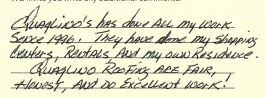 Quaglino's has done All my work
Since 1996. They have done my Shopping
Centers, Rentals And my own Residence.
Quaglino Roofing ARE FAIR,
Honest, And do Excellent work.